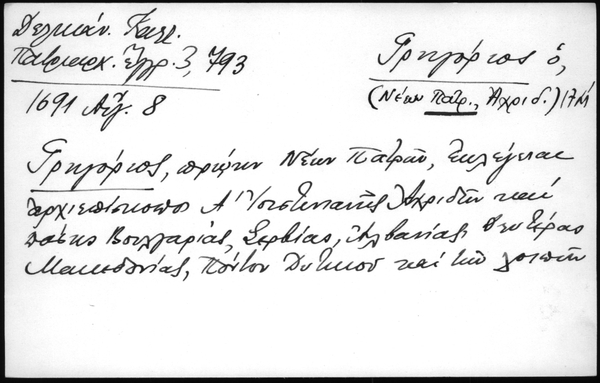 Δελικάν. Καλλ.
Πατριαρχ. Ἔγγρ. 3, 793
1691 Αὔγ. 8
Γρηγόριος ὁ,
(Νέων Πατρ., Ἀχριδ.) 17
Γρηγόριος, πρώην Νέων Πατρῶν, ἐκλέγεται
ἀρχιεπίσκοπος Α' Ἰουστινιανῆς Ἀχριδῶν καί
πάσης Βουλγαρίας, Σερβίας, Ἀλβανίας, Δευτέρας
Μακεδονίας, Πόντου Δυτικοῦ καί τῶν λοιπῶν